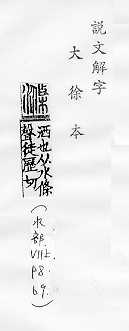 説文解字
大徐本
滌
洒也从水條
聲徒歷切
(水部. P8. b9.)